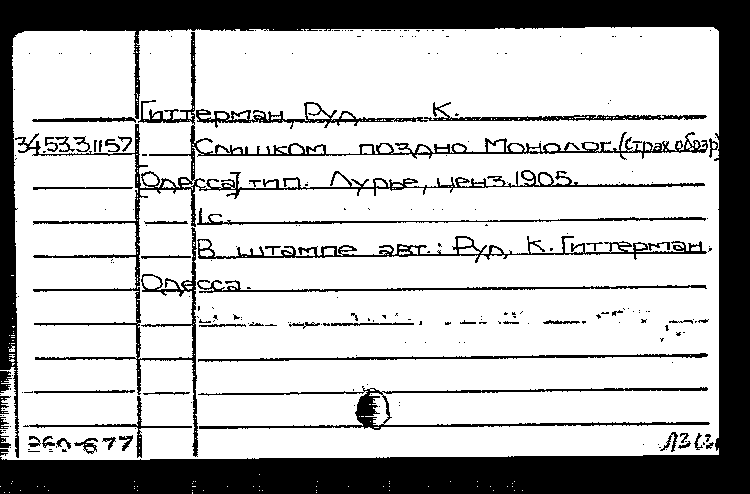 Гиттерман, Руд. К.
34.53.3.1157 Слишком поздно Монолог. (страх обозр)
[Одесса] тип. Лурье, ценз. 1905.
1с.
В штампе авт.: Руд. К. Гиттерман.
Одесса.
260-677